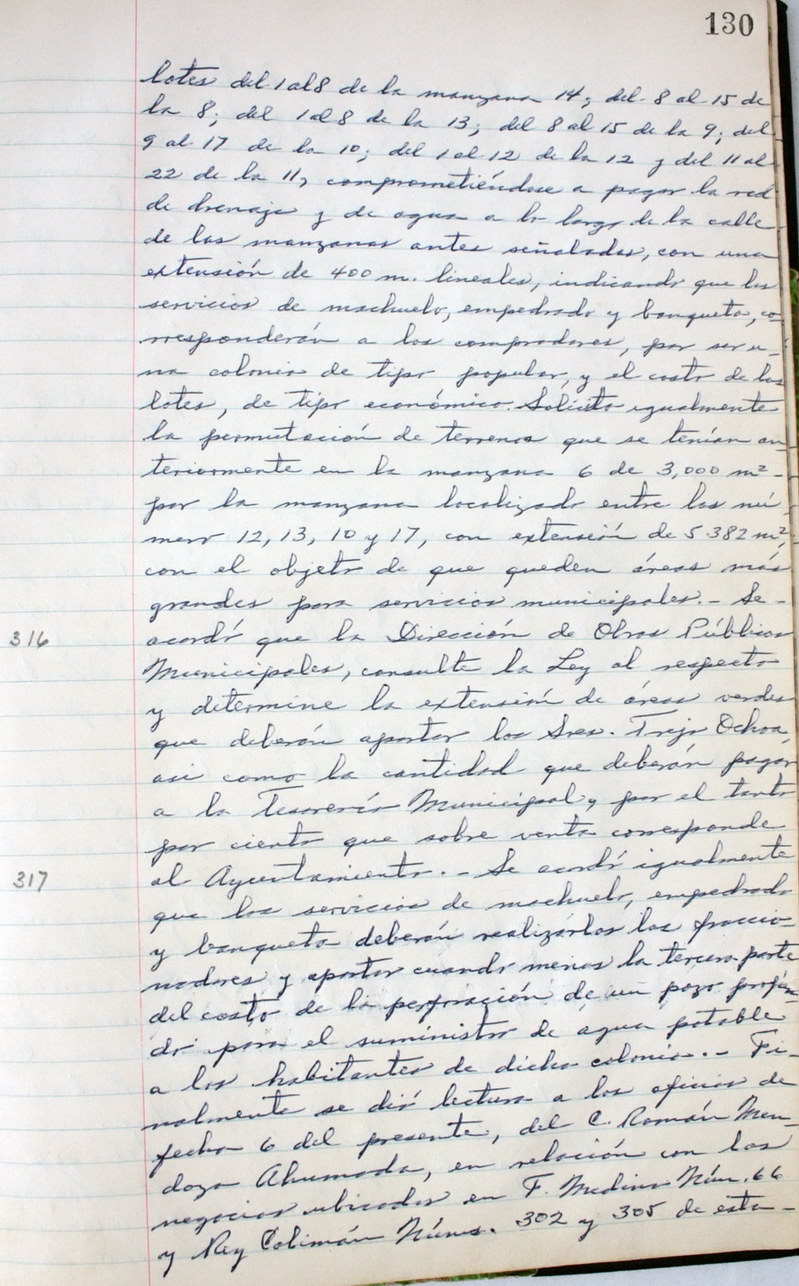 130
lotes del 1 al 8 de la manzana 14; del 8 al 15 de
la 8; del 1 al 8 de la 13; del 8 al 15 de la 9; del
9 al 17 de la 10; del 1 al 12 de la 12 y del 11 al
22 de la 11, comprometiéndose a pagar la red
de drenaje y de agua a lo largo de la calle
de las manzanas antes señaladas, con una
extensión de 400 m. lineales, indicando que los
servicios de machuelo, empedrado y banqueta, co-
rresponderán a los compradores, por ser u-
na colonia de tipo popular, y el costo de los
lotes, de tipo económico. Solicito igualmente
la permutación de terrenos que se tenían an
teriormente en la manzana 6 de 3,000 m² -
por la manzana localizada entre las nú-
mero 12, 13, 10 y 17, con extensión de 5 382 m²,
con el objeto de que queden áreas más
grandes para servicios municipales. - Se -
316 acordó que la Dirección de Obras Públicas
Municipales, consulte la Ley al respecto
y determine la extensión de áreas verdes
que deberán aportar los Sres. Trejo Ochoa,
asi como la cantidad que deberán pagar
a la Tesorería Municipal y por el tanto
por ciento que sobre venta corresponde
317 al Ayuntamiento. - Se acordó igualmente
que los servicios de machuelo, empedrado
y banqueta deberán realizarlos los fraccio-
nadores y aportar cuando menos la tercera parte
del costo de la perforación de un pozo profun-
do para el suministro de agua potable
a los habitantes de dicha colonia. - Fi-
nalmente se dió lectura a los oficios de
fecha 6 del presente, del C. Román Men-
doza Ahumada, en relación con los
negocios ubicados en F. Medina Núm. 66
y Rey Colimán Núms. 302 y 305 de esta -